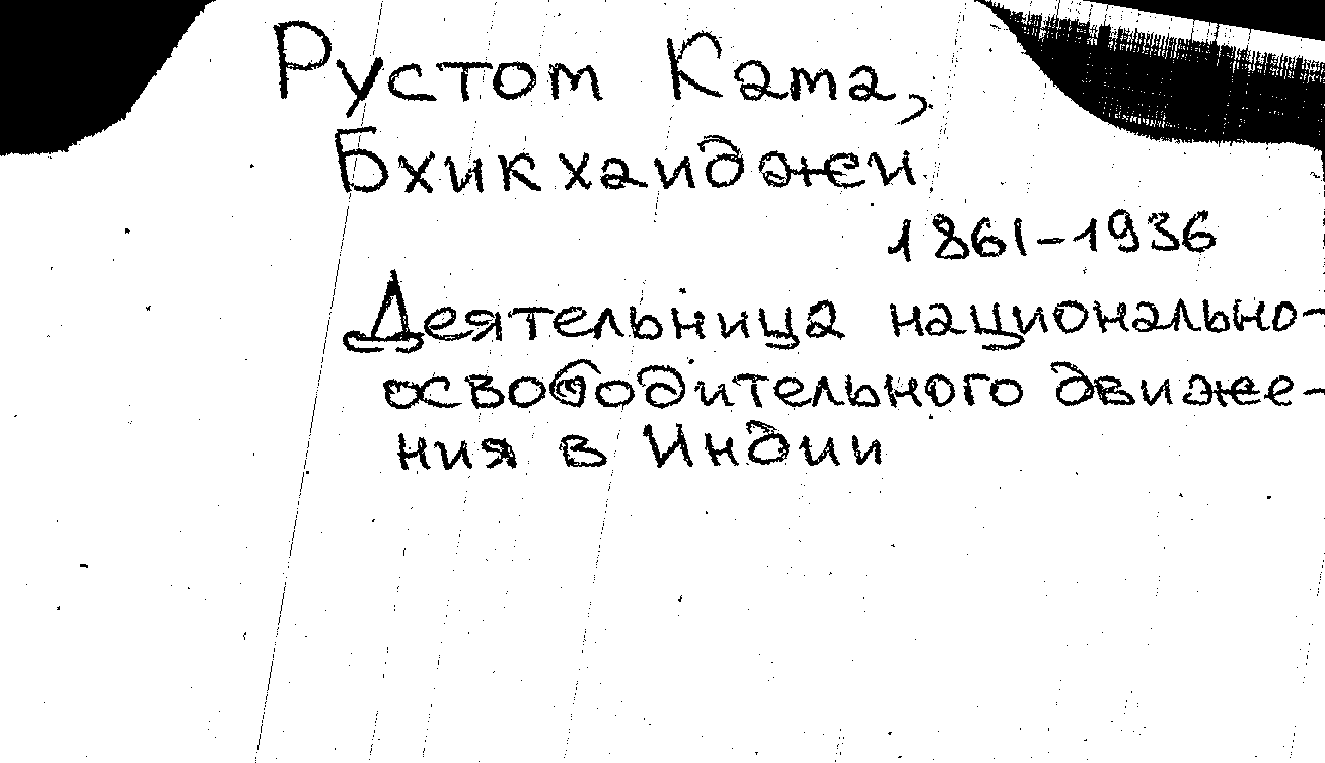 Рустом Кама,
Бхикхаиджи
1861-1936
Деятельница национально-
освободительного движе-
ния в Индии